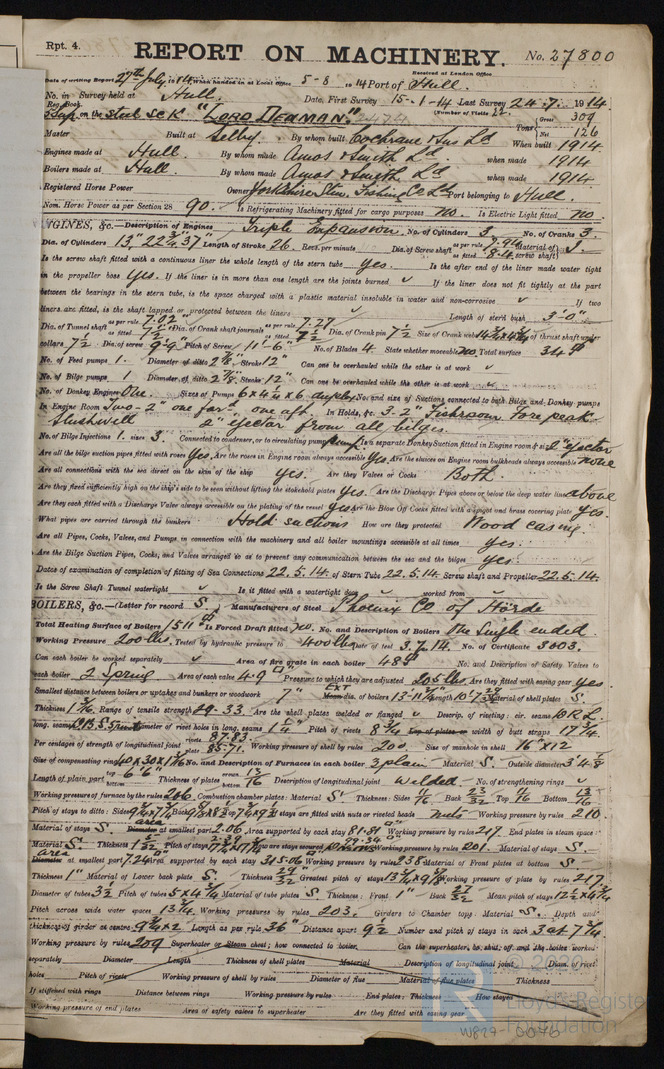 Rpt. 4.
REPORT ON MACHINERY.
No. 27800
Received at London Office
Date of writing Report 27th July 1914 When handed in at Local Office 5-8 1914 Port of Hull.
No. in Survey held at Hull. Date, First Survey 15-1-14 Last Survey 24.7. 1914
Reg. Book.
on the Steel Sc K "LORD DENMAN." (Number of Visits 22
Gross 309
Tons
Net 126
Master Built at Selby. By whom built Cochrane & Sons Ld When built 1914
Engines made at Hull. By whom made Amos & Smith Ld. when made 1914
Boilers made at Hull. By whom made Amos & Smith Ld. when made 1914
Registered Horse Power Owners Yorkshire Stm. Fishing Co Ld Port belonging to Hull.
Nom. Horse Power as per Section 28 90. Is Refrigerating Machinery fitted for cargo purposes no. Is Electric Light fitted no
ENGINES, &c.—Description of Engines Triple Expansion. No. of Cylinders 3 No. of Cranks 3.
Dia. of Cylinders 13", 22 3/4", 37" Length of Stroke 26. Revs. per minute Dia. of Screw shaft as per rule 7.94 as fitted 8.4 Material of screw shaft
Is the screw shaft fitted with a continuous liner the whole length of the stern tube yes. Is the after end of the liner made water tight
in the propeller boss yes. If the liner is in more than one length are the joints burned If the liner does not fit tightly at the part
between the bearings in the stern tube, is the space charged with a plastic material insoluble in water and non-corrosive If two
liners are fitted, is the shaft lapped or protected between the liners Length of stern bush 3'-0"
Dia. of Tunnel shaft as per rule 7.02 as fitted 7 1/2 Dia. of Crank shaft journals as per rule 7.27 as fitted 7 1/2 Dia. of Crank pin 7 1/2 Size of Crank webs Dia. of thrust shaft under
collars 7 1/2 Dia. of screw 9'-9" Pitch of Screw 11'-6" No. of Blades 4. State whether moveable no. Total surface 34
No. of Feed pumps 1. Diameter of ditto 2 7/8" Stroke 12" Can one be overhauled while the other is at work
No. of Bilge pumps 1 Diameter of ditto 2 7/8" Stroke 12" Can one be overhauled while the other is at work
No. of Donkey Engines One. Sizes of Pumps 6 x 4 1/4 x 6 duplex No. and size of Suctions connected to both Bilge and Donkey pumps
In Engine Room Two-2" one for'd, one aft. In Holds, &c. 3-2" Fishroom Forepeak
Slushwell 2" ejector from all bilges.
No. of Bilge Injections 1. sizes 3. Connected to condenser, or to circulating pump pump Is a separate Donkey Suction fitted in Engine room & size 2" ejector
Are all the bilge suction pipes fitted with roses yes. Are the roses in Engine room always accessible yes. Are the sluices on Engine room bulkheads always accessible none
Are all connections with the sea direct on the skin of the ship yes. Are they Valves or Cocks Both.
Are they fixed sufficiently high on the ship's side to be seen without lifting the stokehold plates yes. Are the Discharge Pipes above or below the deep water line above
Are they each fitted with a Discharge Valve always accessible on the plating of the vessel yes. Are the Blow Off Cocks fitted with a spigot and brass covering plate yes.
What pipes are carried through the bunkers Hold suctions How are they protected Wood casing.
Are all Pipes, Cocks, Valves, and Pumps in connection with the machinery and all boiler mountings accessible at all times yes.
Are the Bilge Suction Pipes, Cocks, and Valves arranged so as to prevent any communication between the sea and the bilges yes.
Dates of examination of completion of fitting of Sea Connections 22.5.14. of Stern Tube 22.5.14. Screw shaft and Propeller 22.5.14.
Is the Screw Shaft Tunnel watertight Is it fitted with a watertight door worked from
BOILERS, &c.—(Letter for record S.) Manufacturers of Steel Phoenix Co of Hörde
Total Heating Surface of Boilers 1511 Is Forced Draft fitted no. No. and Description of Boilers One Single ended.
Working Pressure 200 lbs. Tested by hydraulic pressure to 400 lbs Date of test 3.7.14. No. of Certificate 3003.
Can each boiler be worked separately Area of fire grate in each boiler 48 No. and Description of Safety Valves to
each boiler 2 Spring. Area of each valve 4.9 Pressure to which they are adjusted 205 lbs. Are they fitted with easing gear yes
Smallest distance between boilers or uptakes and bunkers or woodwork 7" Ext dia. of boilers 13-11 3/4" Length Material of shell plates S.
Thickness Range of tensile strength 29-33. Are the shell plates welded or flanged Descrip. of riveting: cir. seams
long. seams Diameter of rivet holes in long. seams 1 1/4" Pitch of rivets 8 3/4 width of butt straps 17 3/4.
Per centages of strength of longitudinal joint rivets 87.83 plate 85.71. Working pressure of shell by rules 200. Size of manhole in shell 16" x 12
Size of compensating ring No. and Description of Furnaces in each boiler 3 plain Material S. Outside diameter
Length of plain part Thickness of plates Description of longitudinal joint welded. No. of strengthening rings
Working pressure of furnace by the rules 206 Combustion chamber plates: Material S. Thickness: Sides 11/16 Back 23/32 Top 11/16 Bottom 13/16
Pitch of stays to ditto: Sides Back Top If stays are fitted with nuts or riveted heads nuts Working pressure by rules 210
Material of stays S. area at smallest part 2.06 Area supported by each stay 81.81 Working pressure by rules 217. End plates in steam space:
Material S. Thickness Pitch of stays How are stays secured Working pressure by rules 201. Material of stays S.
area at smallest part 7.24 Area supported by each stay 315.06 Working pressure by rules 238 Material of Front plates at bottom S.
Thickness 1" Material of Lower back plate S. Thickness 29/32 Greatest pitch of stays Working pressure of plate by rules 217.
Diameter of tubes 3 1/2 Pitch of tubes 5 x 4 3/4 Material of tube plates S. Thickness: Front 1" Back 27/32 Mean pitch of stays
Pitch across wide water spaces 13 3/4. Working pressures by rules 203. Girders to Chamber tops: Material S. Depth and
thickness of girder at centre 9 3/4 x 2 Length as per rule 36" Distance apart 9 1/2 Number and pitch of stays in each 3 at 7 3/4
Working pressure by rules 209 Superheater or Steam chest; how connected to boiler Can the superheater be shut off and the boiler worked
separately Diameter Length Thickness of shell plates Material Description of longitudinal joint Diam. of rivet
holes Pitch of rivets Working pressure of shell by rules Diameter of flue Material of flue plates Thickness
If stiffened with rings Distance between rings Working pressure by rules End plates: Thickness How stayed
Working pressure of end plates Area of safety valves to superheater Are they fitted with easing gear
© 2020
Lloyd's Register
Foundation
W829-0076